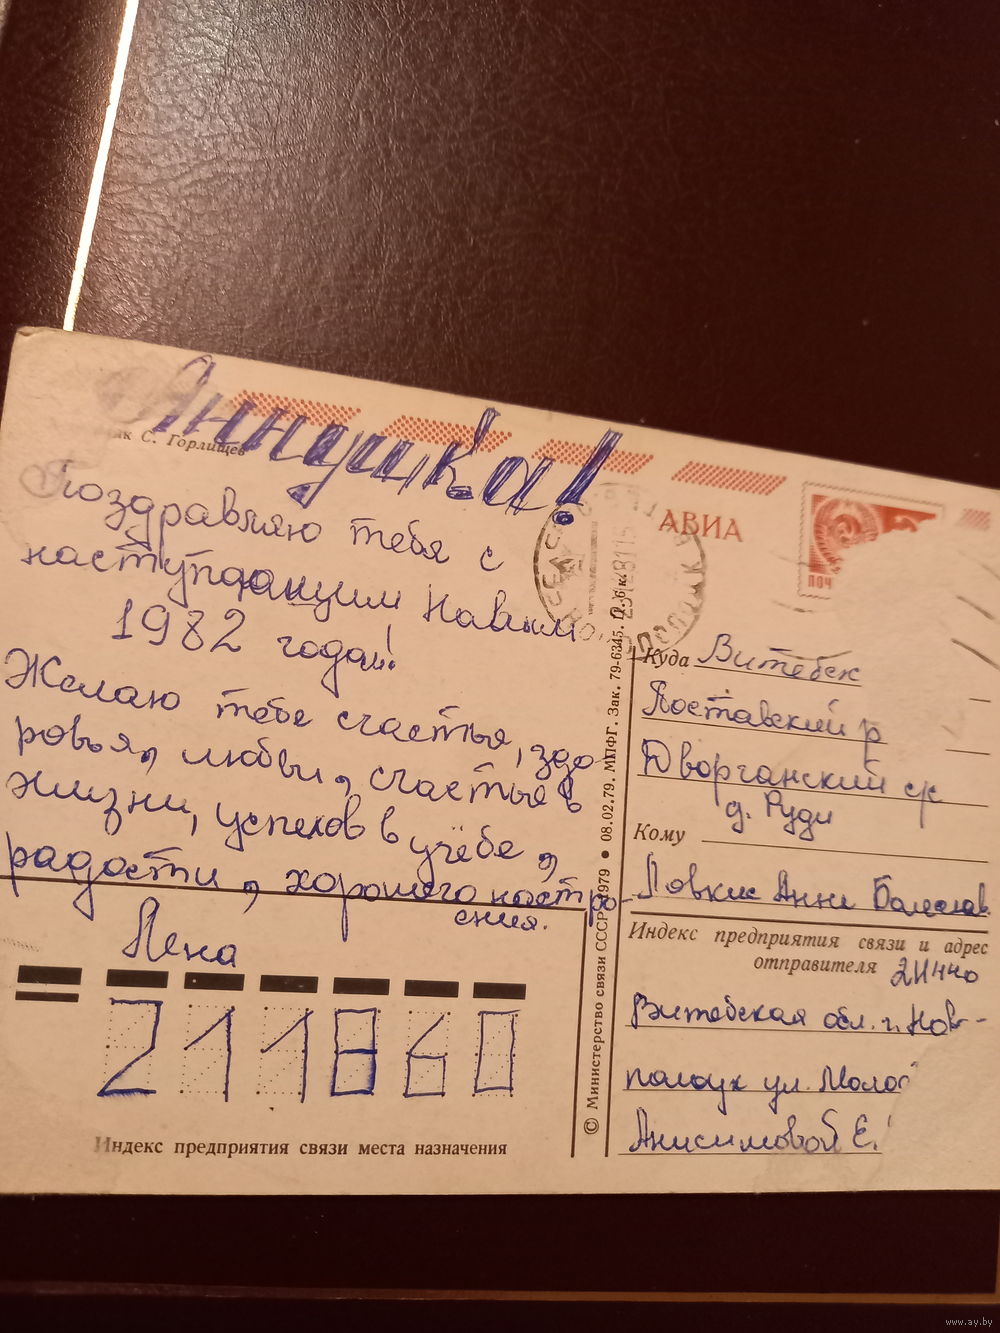 Аннушка!
С. Горлищев
Поздравляю тебя с
наступающим Новым
1982 годом!
Желаю тебе счастья, здо-
ровья, любви, счастья в
жизни, успехов в учёбе,
радости, хорошего настро-
ения.
Лена
211860
Индекс предприятия связи места назначения
© Министерство связи СССР. 1979 • 08.02.79. МПФГ. Зак. 79-6345. Ц. 6 к.
АВИА
ПОЧ
Куда Витебск
Поставский р
Дворчанский с/с
д. Руди
Кому
Ловкис Анне Болеслав.
Индекс предприятия связи и адрес
отправителя 211440
Витебская обл. г. Нов-
полоцк ул. Молод
Анисимовой Е.
www.ay.by